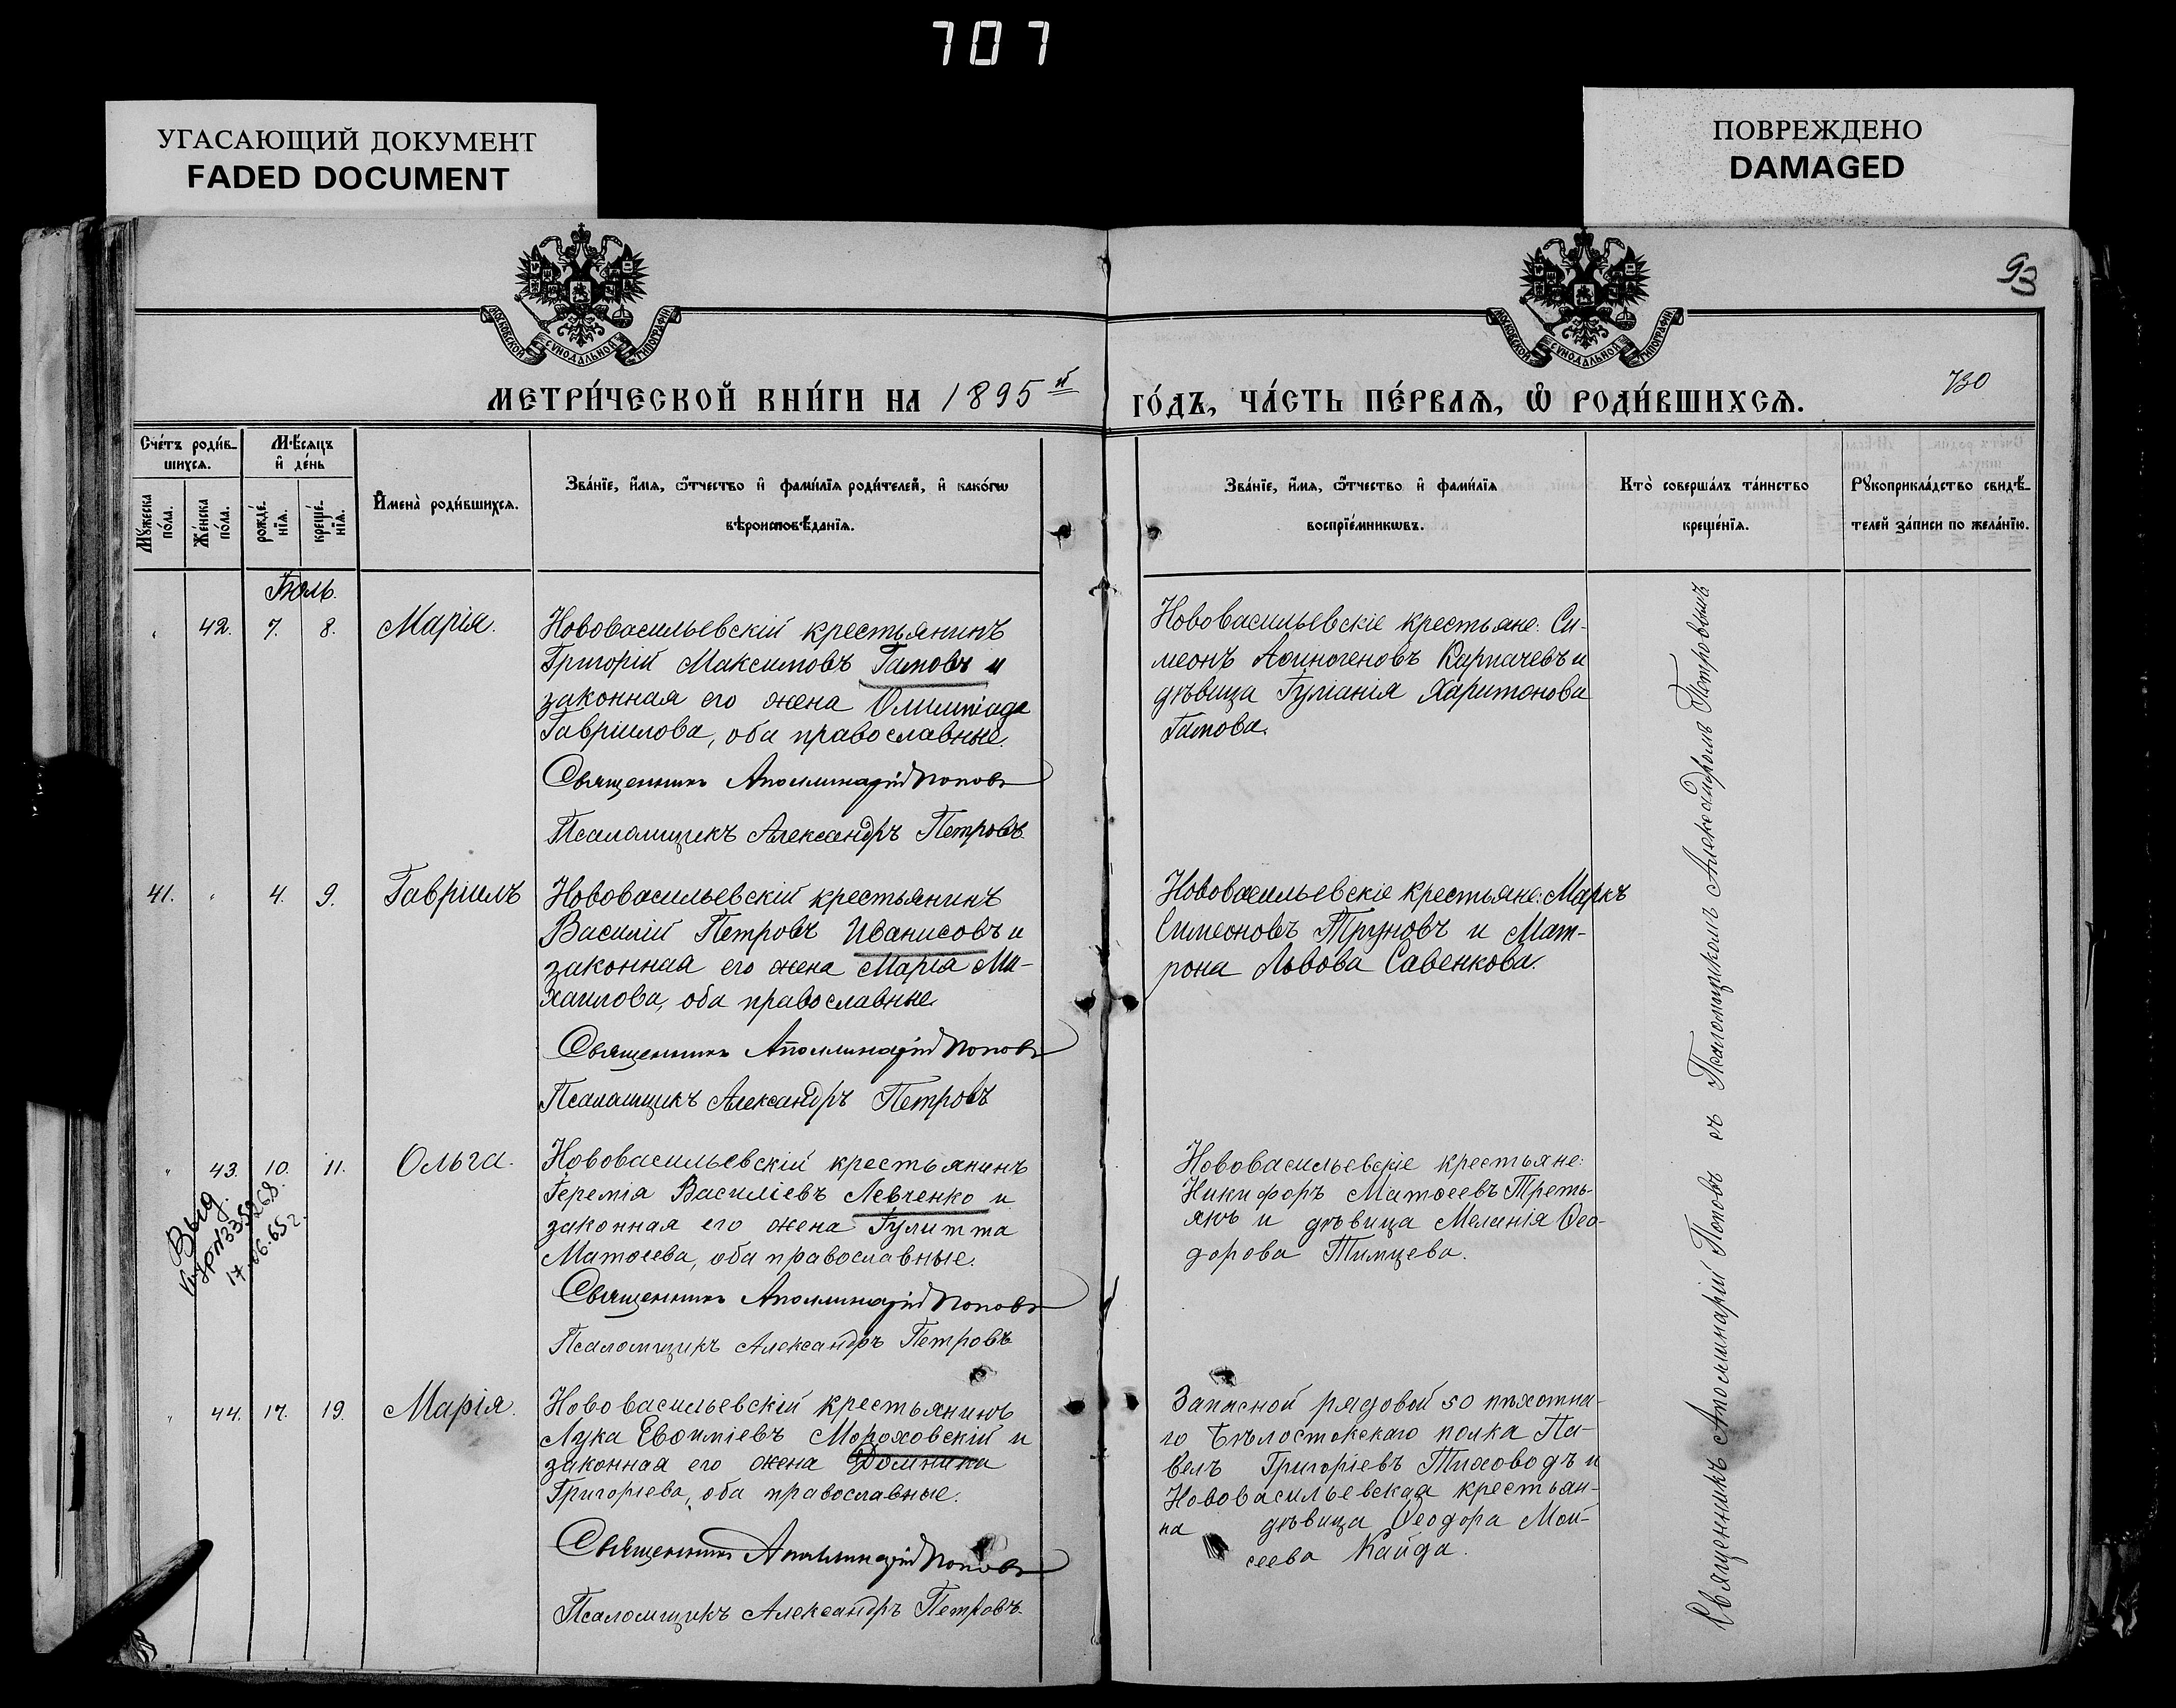 707
УГАСАЮЩИЙ ДОКУМЕНТ
FADED DOCUMENT
ПОВРЕЖДЕНО
DAMAGED
МОСКОВСКОЙ СѴНОДАЛЬНОЙ ТИПОГРАФІИ
МОСКОВСКОЙ СѴНОДАЛЬНОЙ ТИПОГРАФІИ
93
МЕТРИ́ЧЕСКОЙ КНИ́ГИ НА 1895й
ГО́ДЪ, ЧА́СТЬ ПЕ́РВАѦ, Ѽ РОДИ́ВШИХСѦ.
730
Сче́тъ роди́в-
шихсѧ.
Мꙋжеска по́ла.
Же́нска по́ла.
Мѣ́сѧцъ
и҆ де́нь
рожде́-
нїѧ.
креще́-
нїѧ.
И҆мена̀ роди́вшихсѧ.
Зва́нїе, и҆́мѧ, ѻ҆́тчество и҆ фами́лїѧ роди́телей, и҆ како́гѡ
вѣроисповѣ́данїѧ.
Зва́нїе, и҆́мѧ, ѻ҆́тчество и҆ фами́лїѧ
воспрїе́мникѡвъ.
Кто̀ соверша́лъ та́инство
креще́нїѧ.
Рꙋкоприкла́дство свидѣ́-
телей за́писи по жела́нїю.
Іюль.
" 42. 7. 8. Марія.
Нововасильевскій крестьянинъ
Григорій Максимовъ Гамовъ и
законная его жена Олимпіада
Гавріилова, оба православные.
Священникъ Аполлинарій Поповъ
Псаломщикъ Александръ Петровъ.
Нововасильевскіе крестьяне: Си-
меонъ Аѳиногеновъ Карпачевъ и
дѣвица Іуліанія Харитонова
Гамова.
41. " 4. 9. Гавріилъ
Нововасильевскій крестьянинъ
Василій Петровъ Иванисовъ и
законная его жена Марія Ми-
хаилова, оба православные
Священникъ Аполлинарій Поповъ
Псаломщикъ Александръ Петровъ
Нововасильевскіе крестьяне: Маркъ
Симеоновъ Труновъ и Мат-
рона Львова Савенкова.
" 43. 10. 11. Ольга.
Выд.
17.06.65г.
Нововасильевскій крестьянинъ
Іеремія Василіевъ Левченко и
законная его жена Іулитта
Матѳеева, оба православные.
Священникъ Аполлинарій Поповъ
Псаломщикъ Александръ Петровъ
Нововасильевскіе крестьяне:
Никифоръ Матѳеевъ Треть-
якъ и дѣвица Меланія Ѳео-
дорова Тимцева.
" 44. 17. 19. Марія.
Нововасильевскій крестьянинъ
Лука Евѳиміевъ Мороховскій и
законная его жена Домника
Григоріева, оба православные.
Священникъ Аполлинарій Поповъ
Псаломщикъ Александръ Петровъ.
Запасной рядовой 50 пѣхотна-
го Бѣлостокскаго полка Па-
велъ Григоріевъ Тиховодъ и
Нововасильевская крестьян-
ка дѣвица Ѳеодора Мои-
сеева Кайда.
Священникъ Аполлинарій Поповъ съ Псаломщикомъ Александромъ Петровымъ